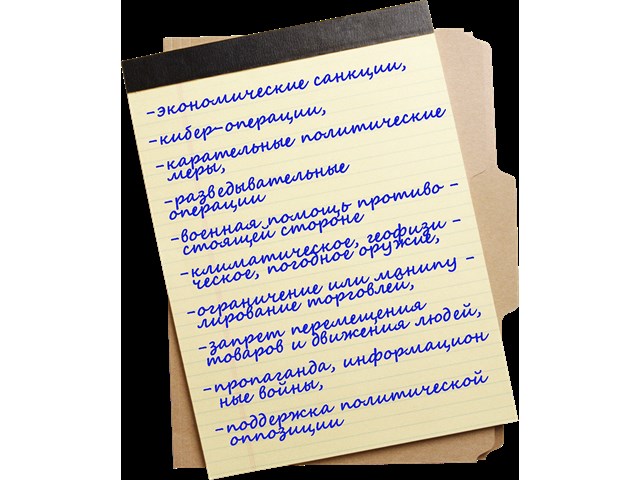 -экономические санкции,
-кибер-операции,
-карательные политические
меры,
-разведывательные
операции
-военная помощь противо -
стоящей стороне
-климатическое, геофизи -
ческое, погодное оружие,
-ограничение или манипу -
лирование торговлей,
-запрет перемещения
товаров и движения людей,
-пропаганда, информацион
ные войны,
-поддержка политической
оппозиции